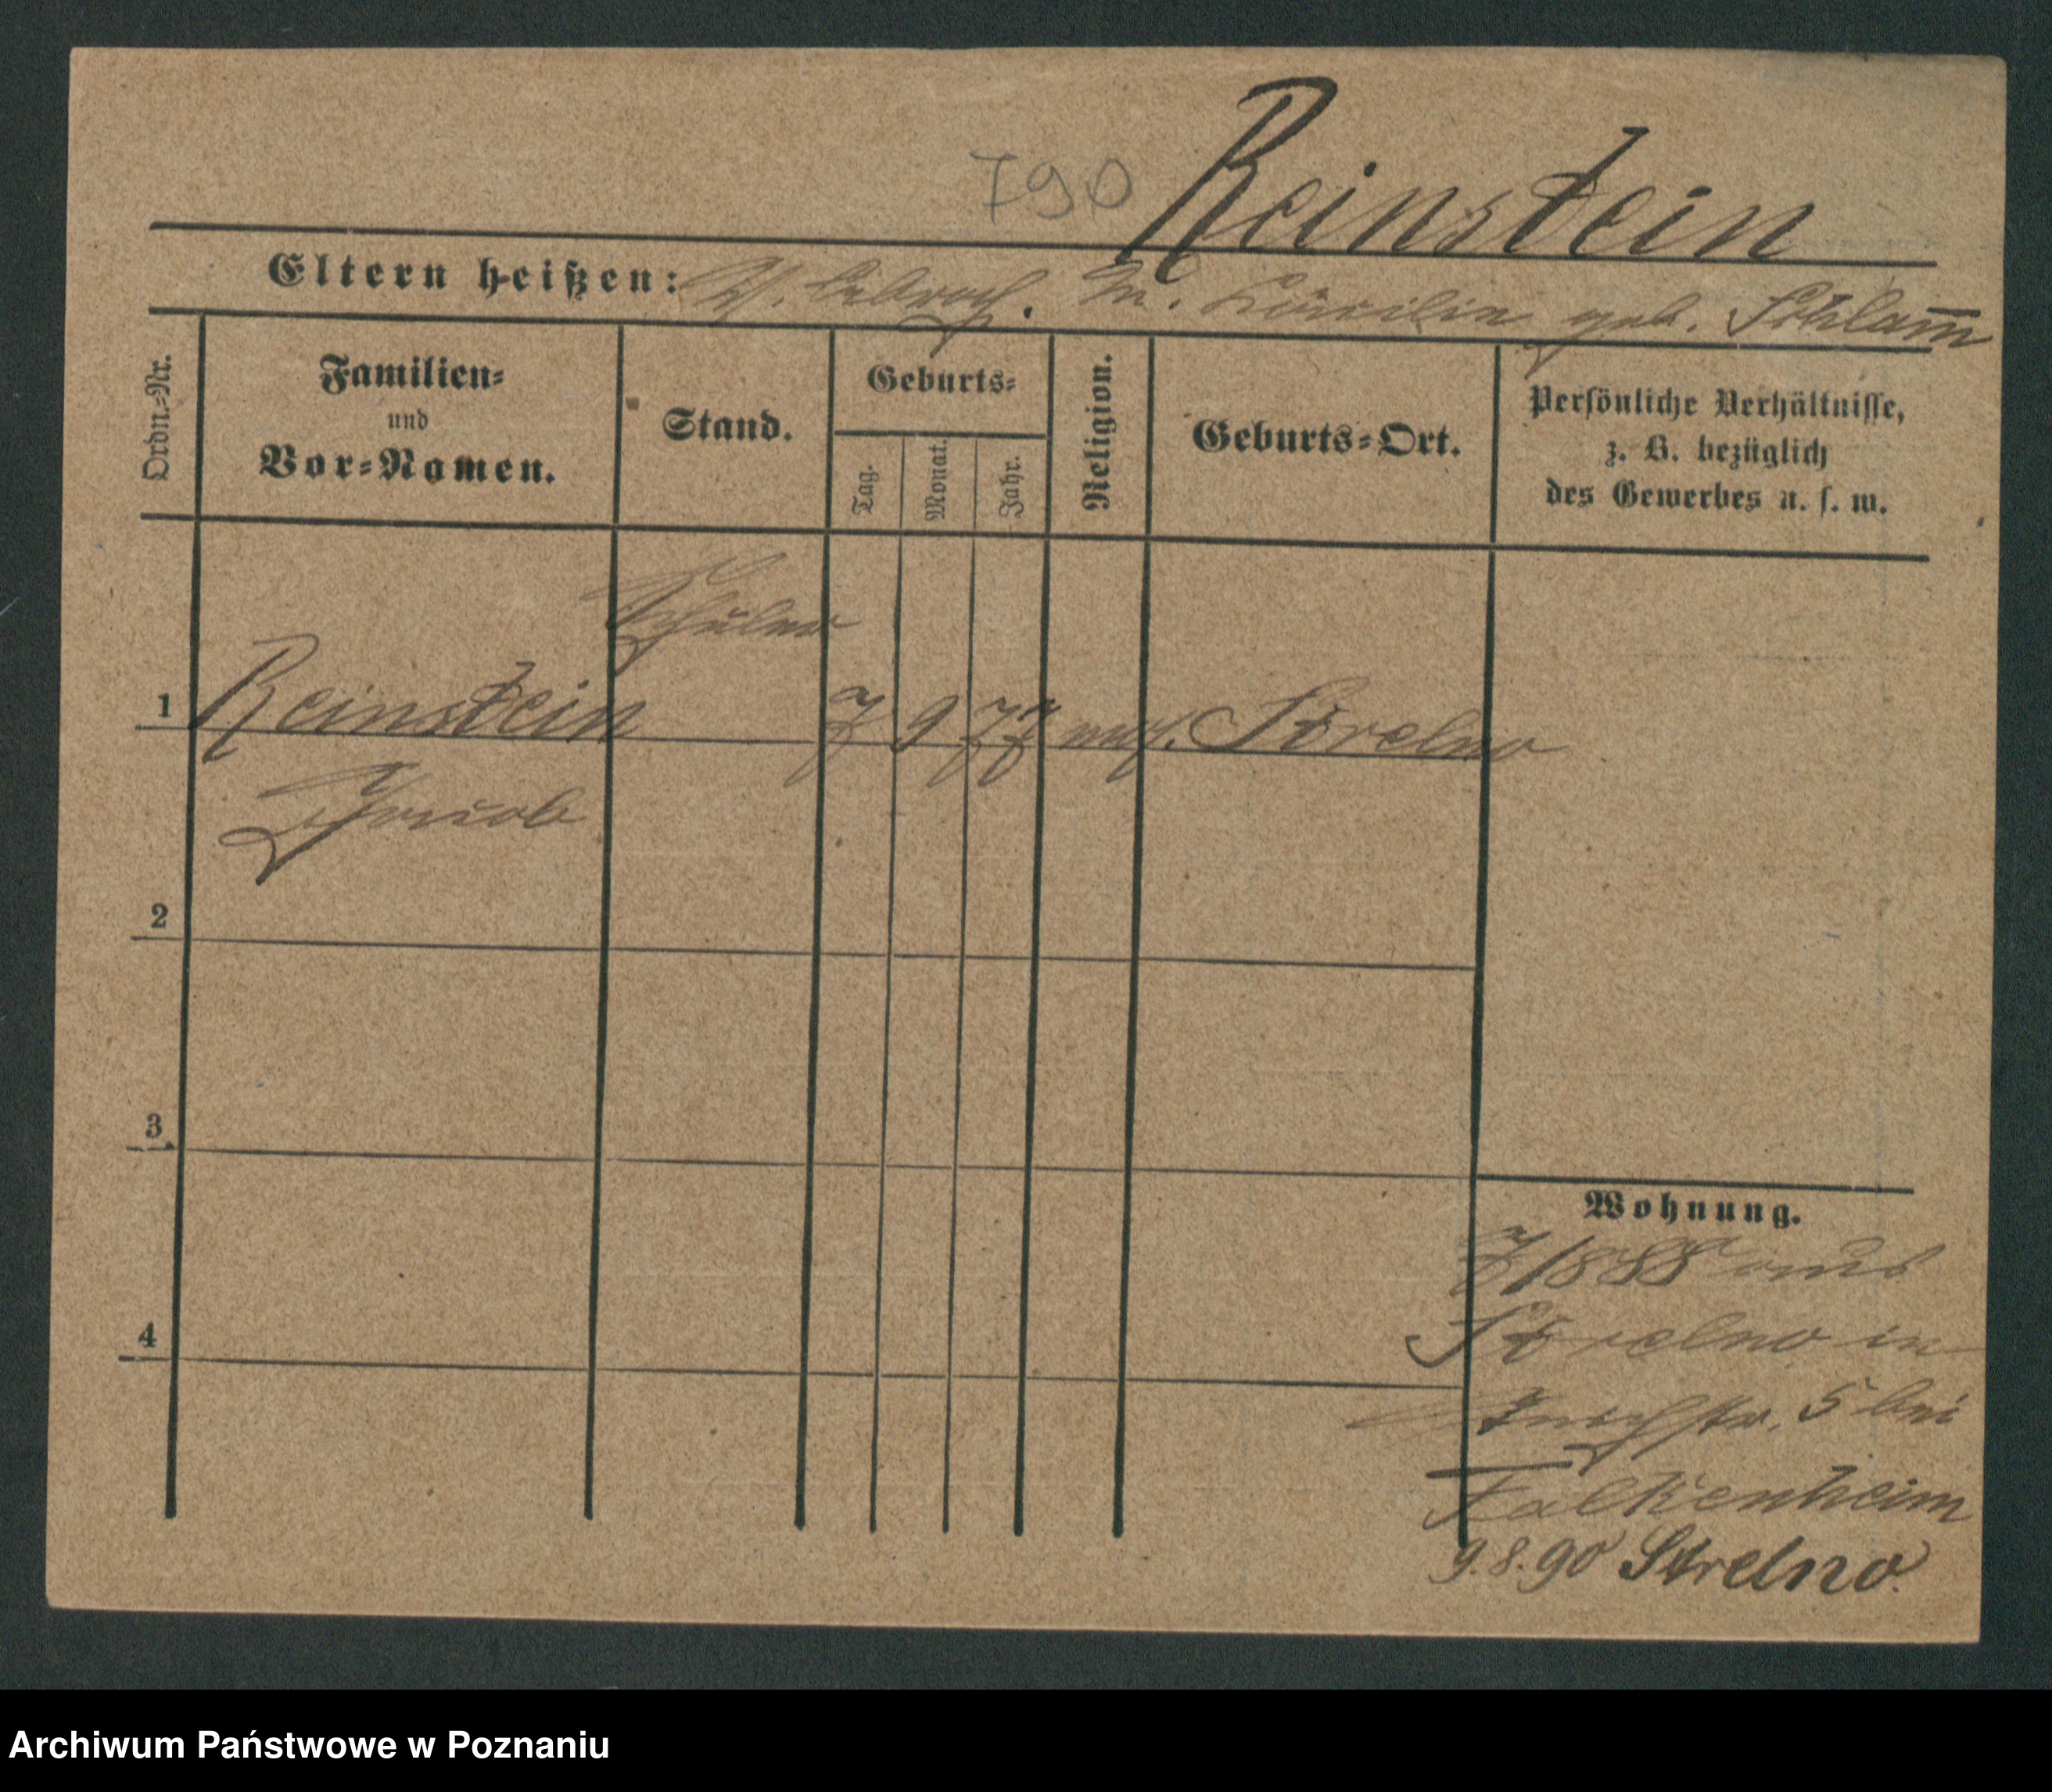 790 Reinstein
Eltern heißen: V. Abrah. M. Cäcilie geb. Schlam̅
Ordn.=Nr.
Familien=
und
Vor=Namen.
Stand.
Geburts=
Tag.
Monat.
Jahr.
Religion.
Geburts=Ort.
Persönliche Verhältnisse,
z. B. bezüglich
des Gewerbes u. s. w.
Schüler
1 Reinstein 7 9 77 mos. Strelno
Jacob
2
3
4
Wohnung.
7/1888 aus
Strelno in
5 bei
Falkenheim
9.8.90 Strelno.
Archiwum Państwowe w Poznaniu